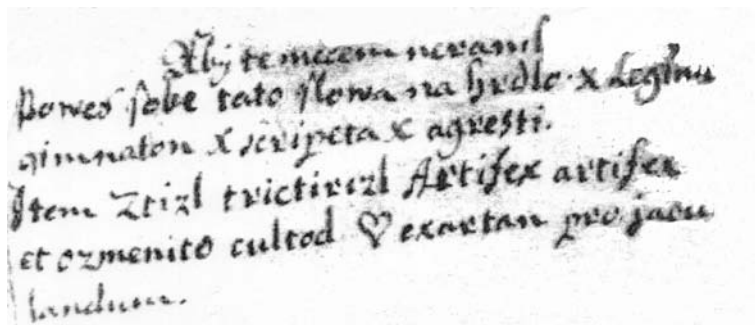 Aby te mecem neranil
Powes sobe tato slowa na hrdlo x Leginu
gimnaton x scripeta x agresti.
Item Ztizl trictirizl Artifex artifex
et ozmenito cultod ♡ exartan pro jacu
landum.